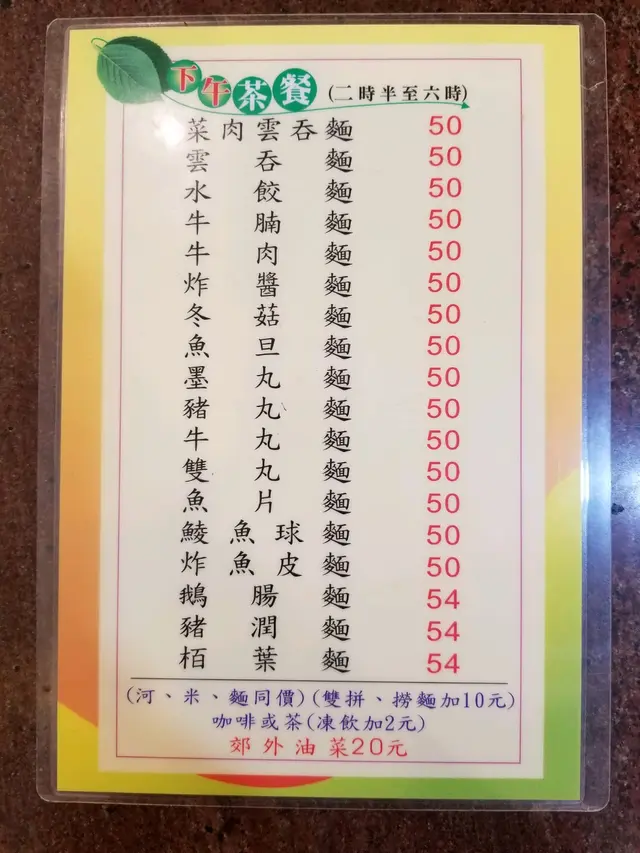 下午茶餐 (二時半至六時)
菜肉雲吞麵 50
雲吞麵 50
水餃麵 50
牛腩麵 50
牛肉麵 50
炸醬麵 50
冬菇麵 50
魚旦麵 50
墨丸麵 50
豬丸麵 50
牛丸麵 50
雙丸麵 50
魚片麵 50
鯪魚球麵 50
炸魚皮麵 50
鵝腸麵 54
豬潤麵 54
栢葉麵 54
(河、米、麵同價)(雙拼、撈麵加10元)
咖啡或茶(凍飲加2元)
郊外油菜20元